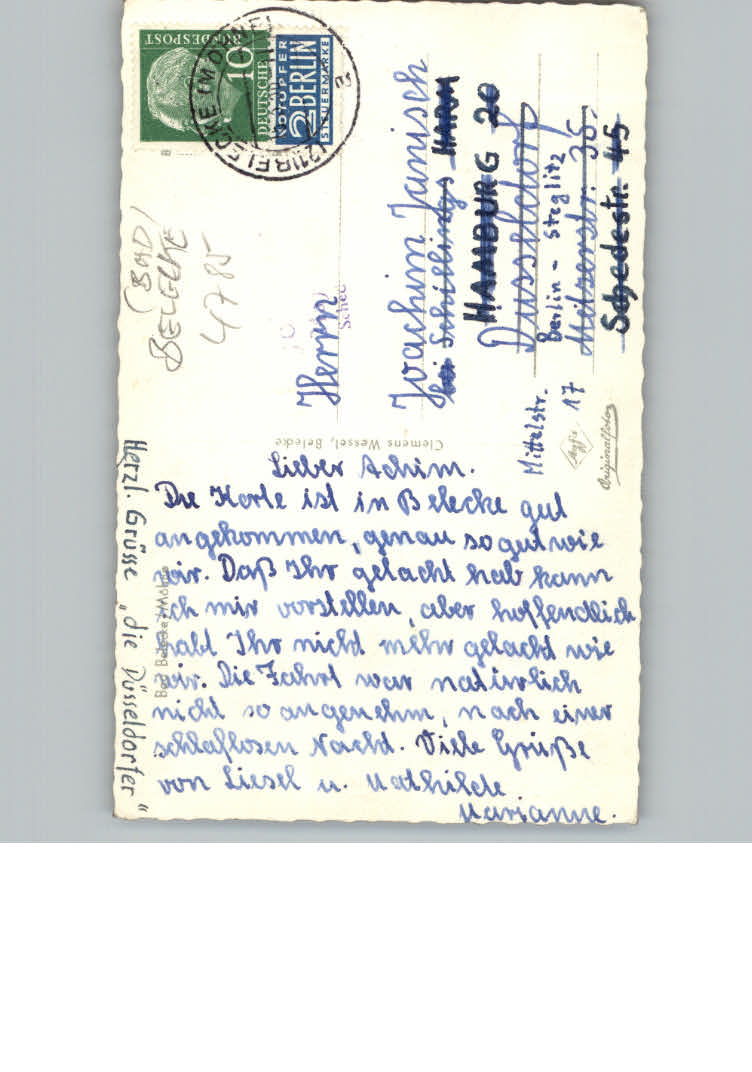 Lieber Achim.
Die Karte ist in Belecke gut
angekommen, genau so gut wie
wir. Daß Ihr gelacht hab kann
ich mir vorstellen, aber hoffendlich
habt Ihr nicht mehr gelacht wie
wir. Die Fahrt war natürlich
nicht so angenehm, nach einer
schlaflosen Nacht. Viele Grüße
von Liesel u. Mathilde
Marianne.
Herzl. Grüsse „die Düsseldorfer"
Herrn
Joachim Janisch
bei Schillings HARM
HAMBURG 20
Düsseldorf
Berlin - Steglitz
Schedestr. 45
Mittelstr. 17
(BAD)
BELECKE
4785
Clemens Wessel, Belecke
Agfa
Originalfoto
DEUTSCHE
BUNDESPOST
10
NOTOPFER
2 BERLIN
STEUERMARKE
(21) BELECKE